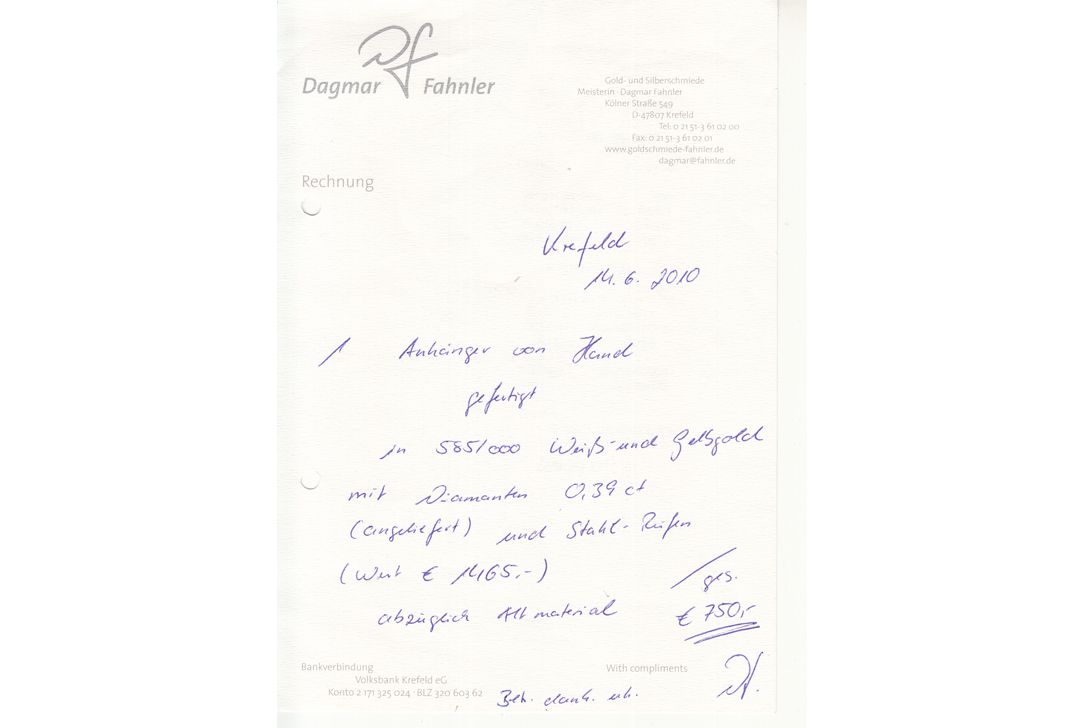 Dagmar Fahnler
Gold- und Silberschmiede
Meisterin · Dagmar Fahnler
Kölner Straße 549
D-47807 Krefeld
Tel: 0 21 51-3 61 02 00
Fax: 0 21 51-3 61 02 01
www.goldschmiede-fahnler.de
dagmar@fahnler.de
Rechnung
Krefeld
14. 6. 2010
1 Anhänger von Hand
gefertigt
in 585/000 Weiß- und Gelbgold
mit Diamanten 0,39 ct
(angeliefert) und Stahl-Reifen
(Wert € 1465,-)
/ ges.
abzüglich Altmaterial € 750,-
Bankverbindung
Volksbank Krefeld eG
Konto 2 171 325 024 · BLZ 320 603 62
With compliments
Btr. dank. erh.